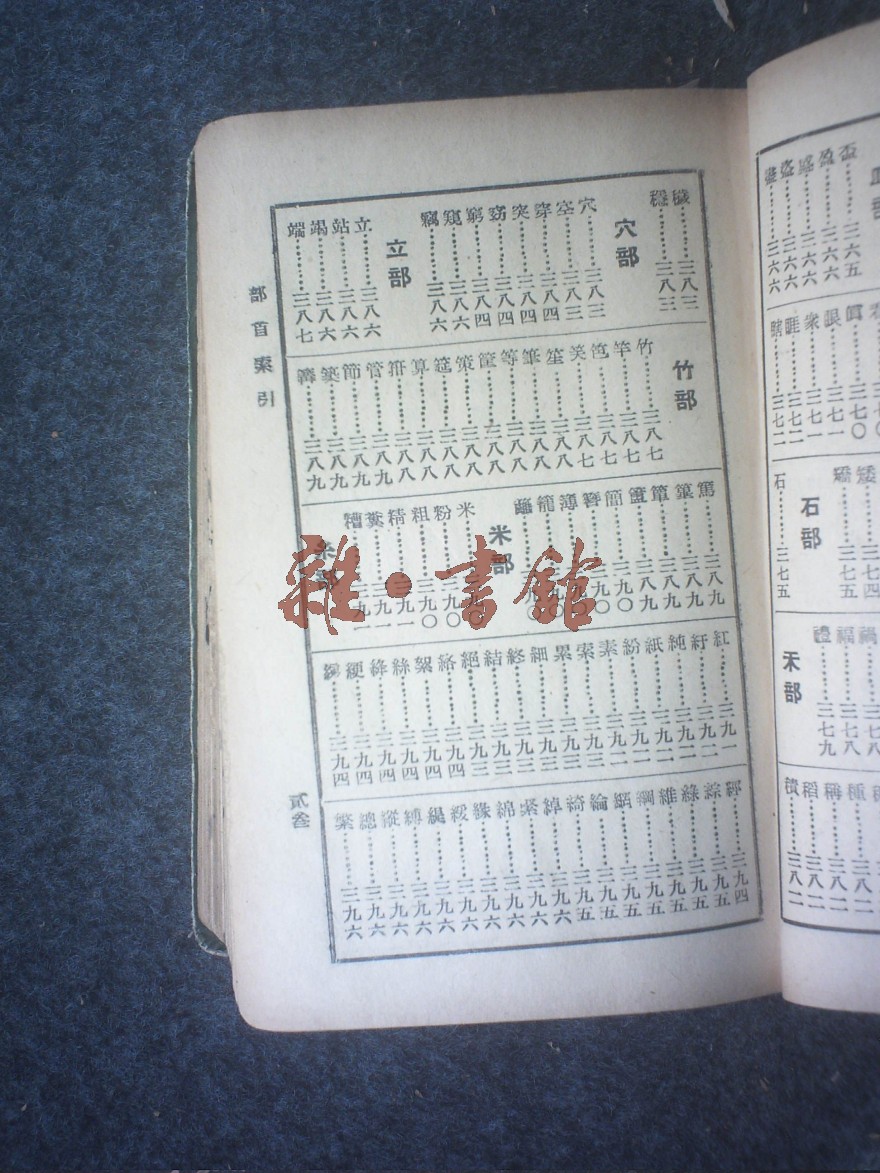 穢……三八三
穩……三八三
穴部
穴……三八三
空……三八三
穿……三八四
突……三八四
窈……三八四
窮……三八四
窺……三八六
竊……三八六
立部
立……三八六
站……三八六
竭……三八六
端……三八七
竹部
竹……三八七
竿……三八七
笑……三八七
笙……三八八
筆……三八八
等……三八八
筐……三八八
策……三八八
筵……三八八
算……三八八
管……三八九
節……三八九
築……三八九
篤……三八九
簞……三八九
簡……三九〇
簪……三九〇
薄……三九〇
籠……三九〇
米部
米……三九〇
粉……三九〇
粗……三九〇
精……三九一
糞……三九一
糟……三九一
糸部
紅……三九一
紆……三九二
純……三九二
紙……三九二
紛……三九二
素……三九三
索……三九三
累……三九三
細……三九三
終……三九三
結……三九三
絕……三九三
絡……三九四
絮……三九四
絲……三九四
絳……三九四
綆……三九四
經……三九四
綜……三九五
綠……三九五
維……三九五
綱……三九五
網……三九五
綸……三九五
綺……三九五
綽……三九六
緊……三九六
綿……三九六
緣……三九六
緩……三九六
緹……三九六
縛……三九六
縱……三九六
總……三九六
繁……三九六
部首索引
貳叁
盃……三六五
盈……三六六
盛……三六六
盜……三六六
眞……三七〇
眼……三七一
衆……三七一
睚……三七二
瞎……三七二
矮……三七五
矯……三七五
石部
石……三七五
禍……三七八
福……三七八
禮……三七九
禾部
種……三八二
稱……三八二
稻……三八二
積……三八二
雜·書館